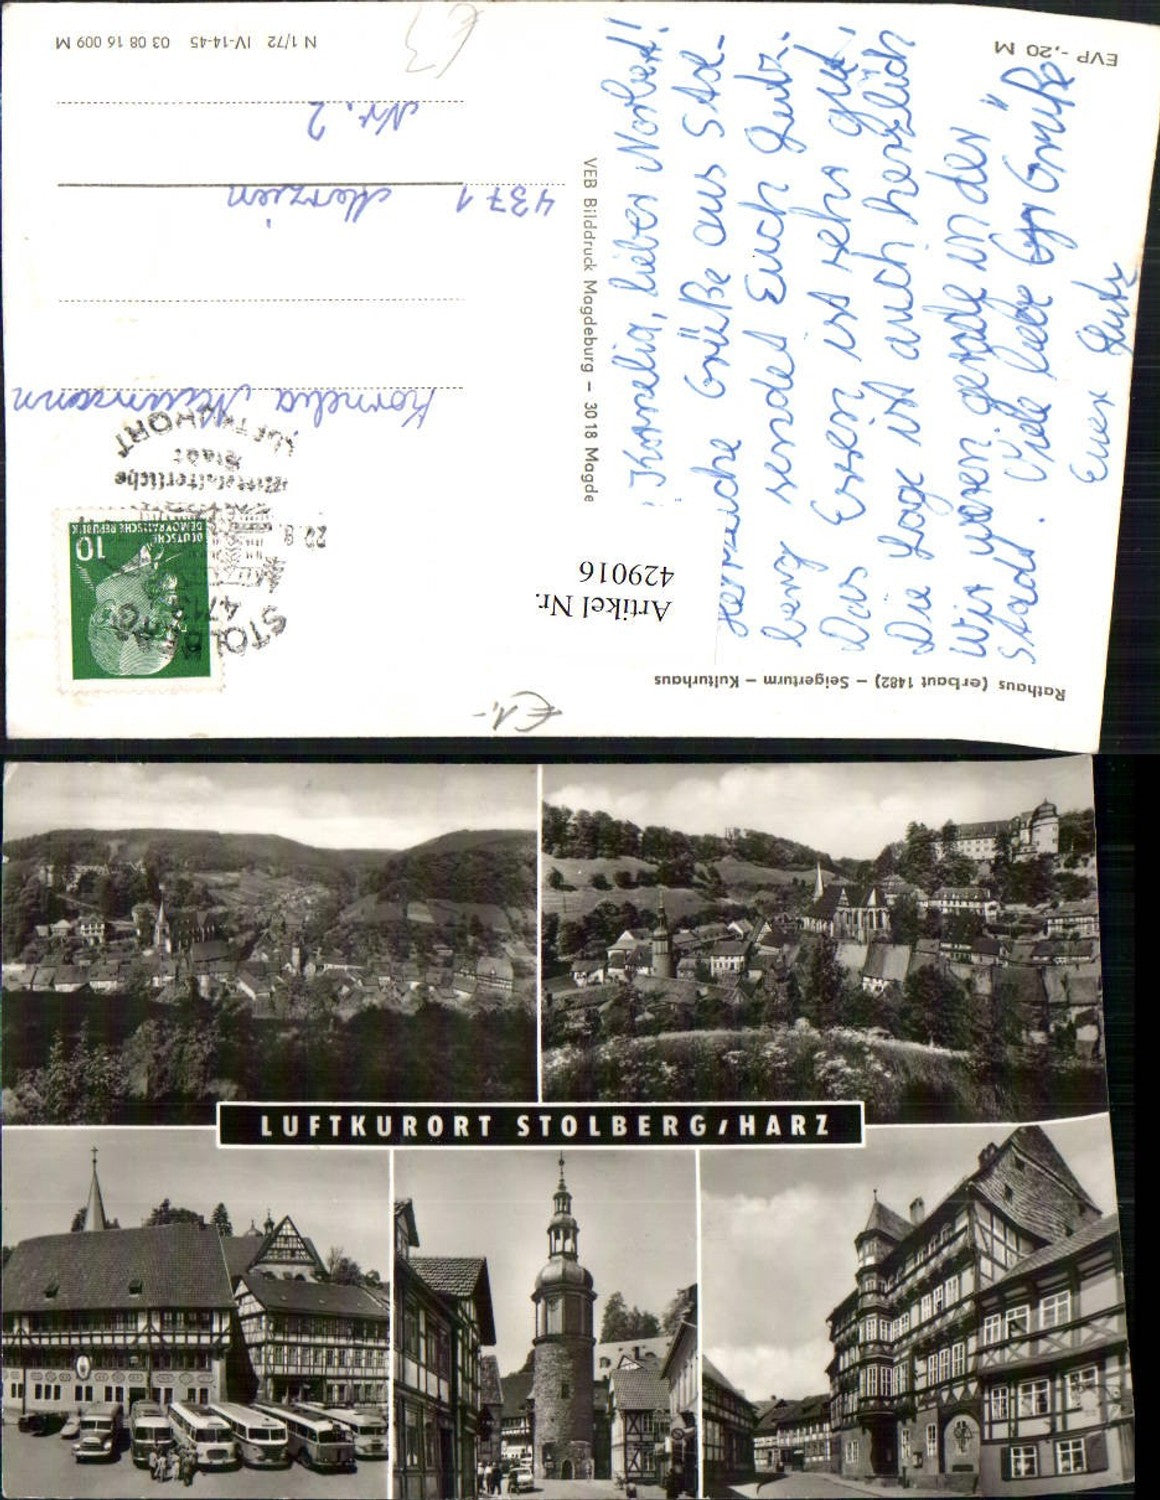 Rathaus (erbaut 1482) – Seigerturm – Kulturhaus
EVP -,20 M
Kornelia, lieber Norbert!
Herzliche Grüße aus Stol-
berg sendet Euch Lutz.
Das Essen ist sehr gut.
Die Lage ist auch herrlich
Wir waren gerade in der
Stadt. Viele liebe Grüße
Euer Lutz
VEB Bilddruck Magdeburg – 3018 Magde
Artikel Nr.
429016
€1,-
DEUTSCHE
DEMOKRATISCHE REPUBLIK
10
STOLBERG
471
22.8
Mittelalterliche
Stadt
LUFTKURORT
Kornelia Naumann
4371 Merzien
Nr. 2
€3
N 1/72 IV-14-45 03 08 16 009 M
LUFTKURORT STOLBERG/HARZ